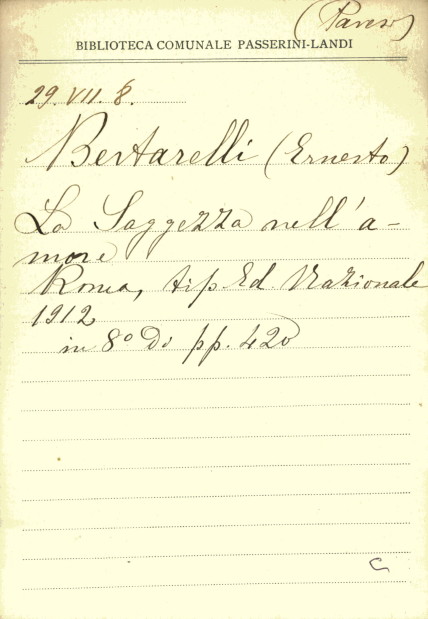 BIBLIOTECA COMUNALE PASSERINI-LANDI
29. VII. 8.
Bertarelli (Ernesto)
La Saggezza nell'a-
more
Roma, tip. Ed. Nazionale
1912
in 8° Di pp. 420
C